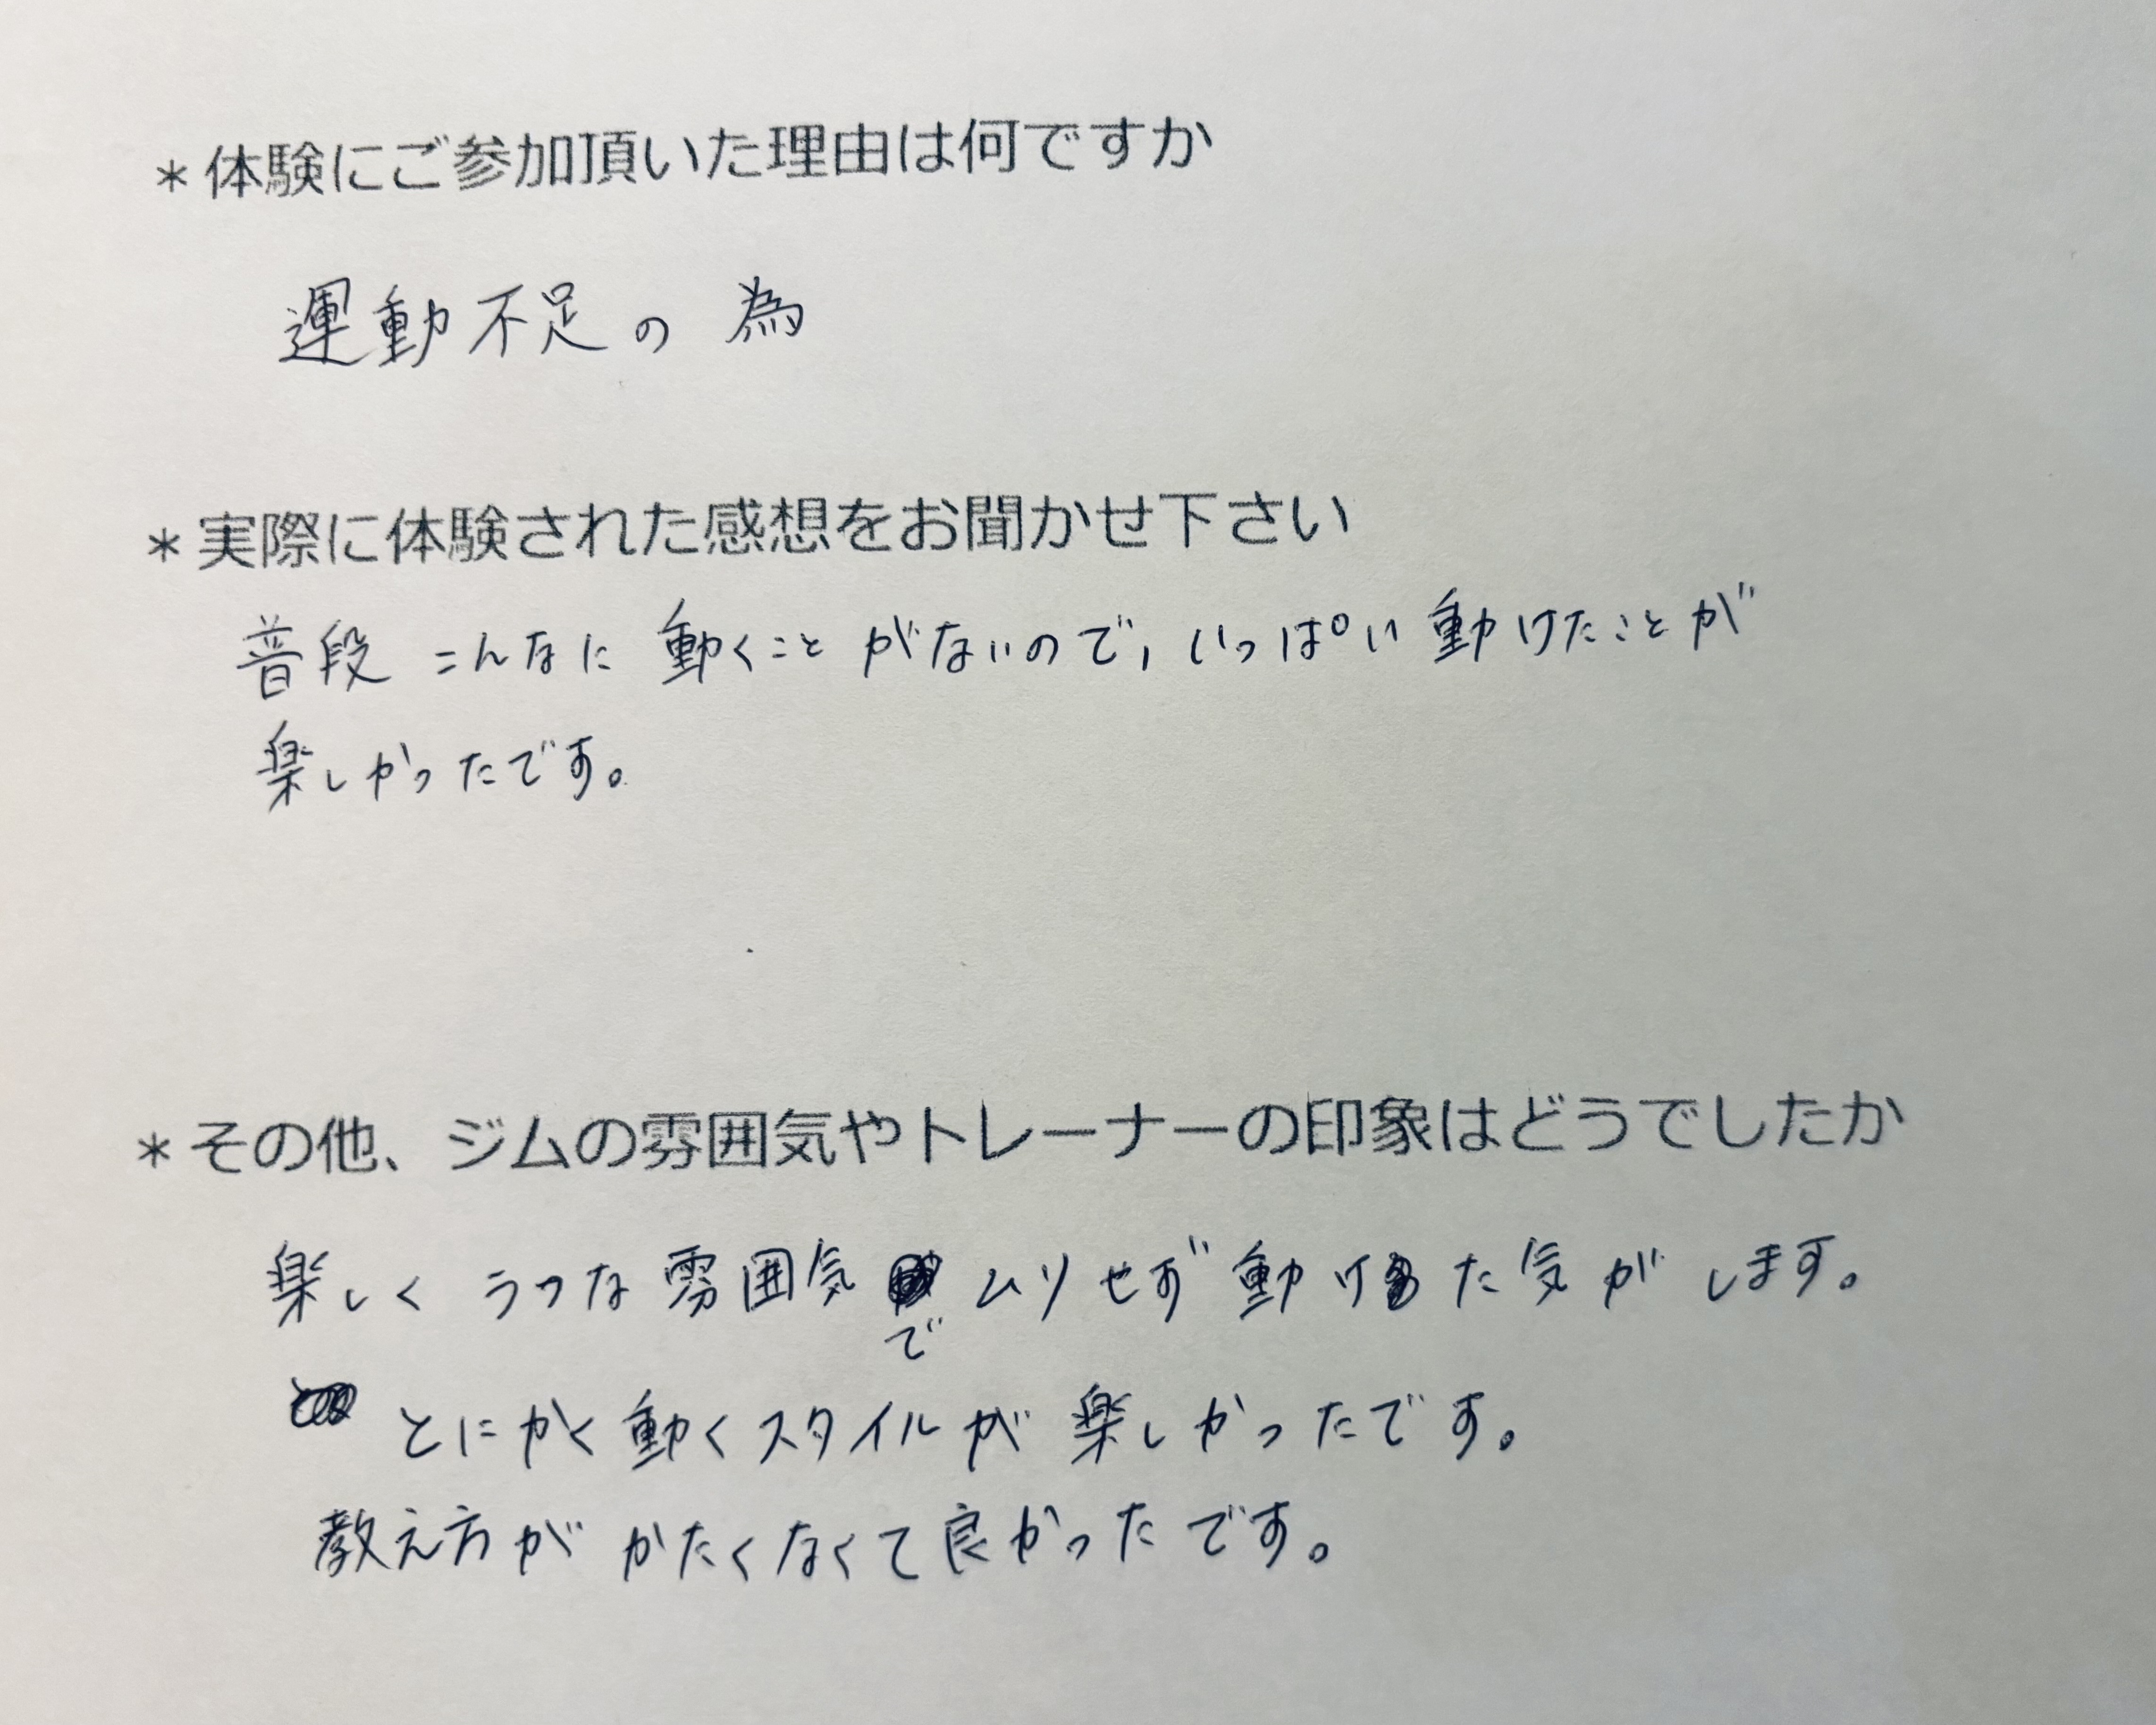 *体験にご参加頂いた理由は何ですか
運動不足の為
*実際に体験された感想をお聞かせ下さい
普段こんなに動くことがないので,いっぱい動けたことが
楽しかったです。
*その他、ジムの雰囲気やトレーナーの印象はどうでしたか
楽しくラフな雰囲気でムリせず動けた気がします。
とにかく動くスタイルが楽しかったです。
教え方がかたくなくて良かったです。